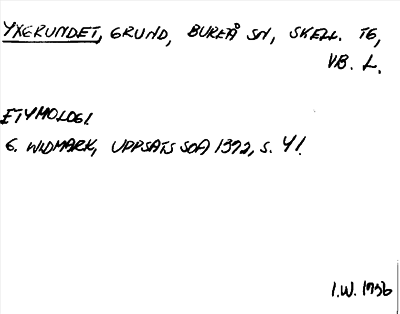 YXGRUNDET, GRUND, BUREÅ SN, SKELL. TG,
VB. L.
ETYMOLOGI
G. WIDMARK, UPPSATS SOA 1372, S. 41.
I.W. 1956